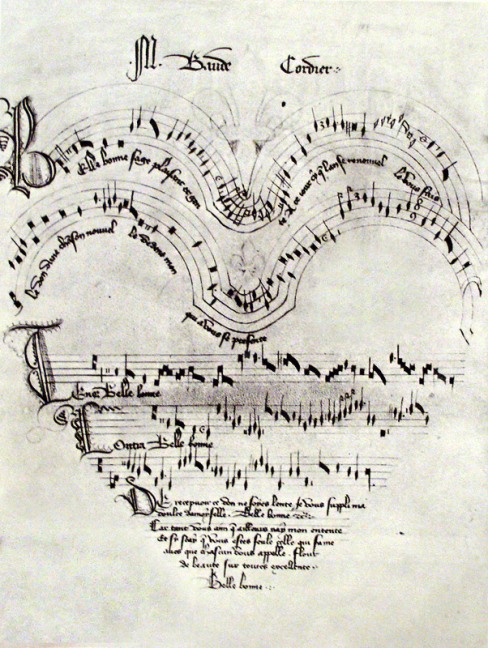 M. Baude Cordier
Belle bonne sage plaisant et gen
Ce Jour cy que lan se renouvel
Vous fais
le don dune chanson nouvel
Dedens mon
qui a vous se presente
Tenor Belle bonne
Contra Belle bonne
De recepvoir ce don ne soyes lente Je vous suppli ma
doulce damoyselle. Belle bonne
Car tant vous am qaillours nay mon entente
Et si scay que vous estes seule celle qui fame
aves que chascun vous appelle. Flour
de beaute sur toutes excellente.
Belle bonne.